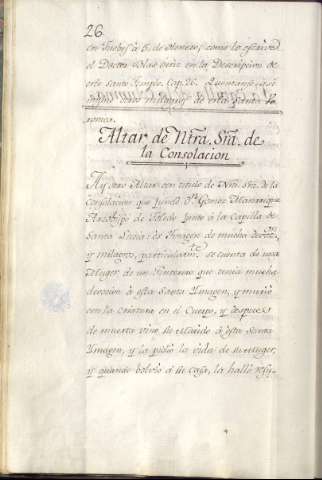 26
en Juebes à 6. de
el Doctor en la Descripcion de
este Santo Templo. Cap. 26.
de esta Santa
Altar de Ntra. Sra. de
la Consolacion
Ay otro Altar con titulo de Ntra. Sra. de la
Consolacion que fundó Dn. Gomez Manrrique
Arzobispo de Toledo junto à la Capilla de
Santa Lucia: es Ymagen de mucha devocon.
y milagros, particularmte. se cuenta de una
Muger de un Pintor que tenia mucha
devocion à esta Santa Ymagen, y murió
con la criatura en el Cuerpo, y despues
de muerta vino su Marido à esta Santa
Ymagen, y la pidio la vida de su Muger,
y quando bolvio à su casa, la halló resu-